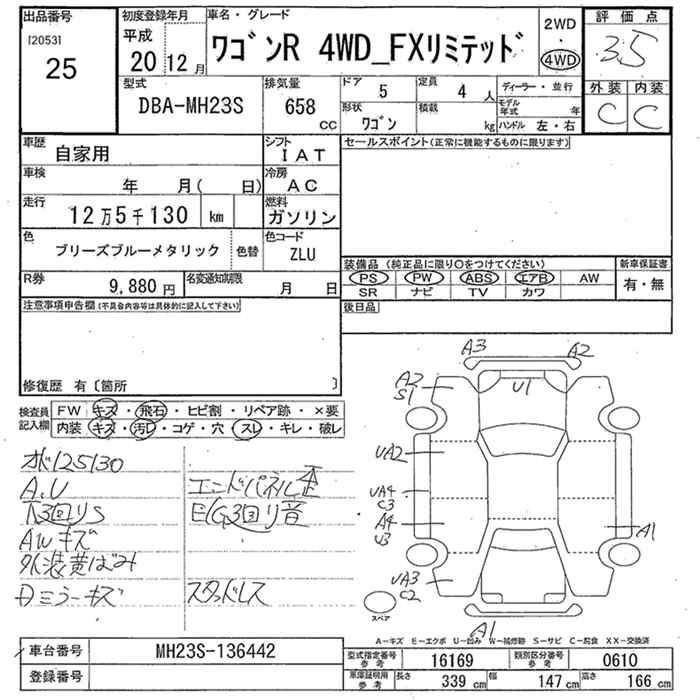 出品番号
[2053]
25
初度登録年月
平成
20 12 月
車名・グレード
ワゴンR 4WD_FXリミテッド
2WD
・
4WD
評価点
3.5
外装 内装
C C
型式
DBA-MH23S
排気量
658
CC
ドア
5
定員
4 人
形状
ワゴン
積載
kg
ディーラー・並行
モデル年式 年
ハンドル 左・右
車歴
自家用
シフト
IAT
車検
年 月( 日)
冷房
AC
走行
12万5千130 km
燃料
ガソリン
色
ブリーズブルーメタリック
色替
色コード
ZLU
R券
9,880 円
名変通知期限
月 日
セールスポイント(正常に機能するものに限ります)
装備品(純正品に限り○をつけてください)
PS PW ABS エアB AW
SR ナビ TV カワ
新車保証書
有・無
後日品
注意事項申告欄(不具合内容等は具体的に記入して下さい)
修復歴 有〔箇所 〕
検査員記入欄
FW キズ・飛石・ヒビ割・リペア跡・×要
内装 キズ・汚レ・コゲ・穴・スレ・キレ・破レ
オド125130
A.U
下3回りS
AWキズ
外装黄ばみ
Dミラーキズ
エンドパネル歪
E/G3回り音
スタッドレス
A3 A2
A2
S1
U1
UA2
UA4
C3
A4
U3
A1
UA3
C2
A1
スペア
A-キズ E-エクボ U-凹み W-補修跡 S-サビ C-腐食 XX-交換済
車台番号
MH23S-136442
登録番号
型式指定番号
参考
16169
類別区分番号
参考
0610
車庫証明用
参考
長さ
339 cm
幅
147 cm
高さ
166 cm